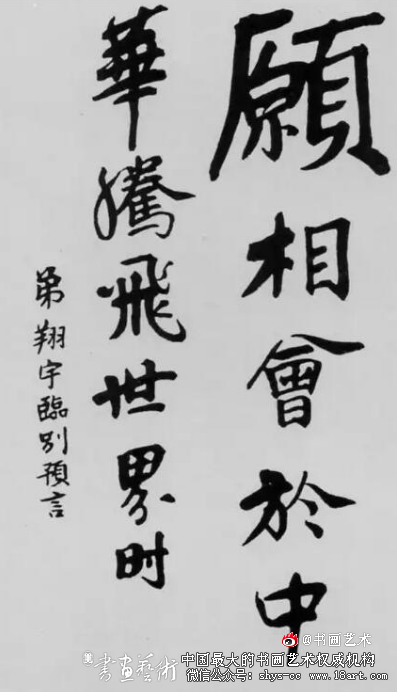 願相會於中
華騰飛世界时
弟翔宇臨别預言
@书画艺术
書画藝術
中国最大的书画艺术权威机构
微信公众号：shys-cc www.18art.com